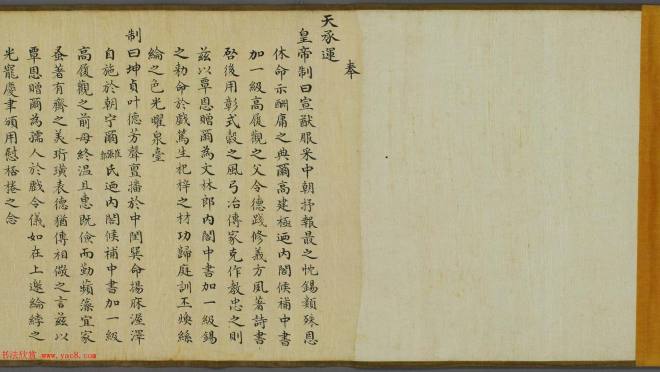 奉
天承運
皇帝制曰宣猷服采中朝抒報最之忱錫類殊恩
休命示酬庸之典爾高建極迺內閣候補中書
加一級高履觀之父令德踐修義方夙著詩書
啓後用彰式穀之風弓冶傳家克作教忠之則
茲以覃恩贈爾為文林郎內閣中書加一級錫
之勅命於戲篤生杞梓之材功歸庭訓丕煥絲
綸之色光曜泉臺
制曰坤貞叶德芳聲亶播於中閨巽命揚庥渥澤
自施於朝宁爾氏迺內閣候補中書加一級
高履觀之前母終溫且惠既儉而勤蘋藻宜家
蚤著有齊之美珩璜表德猶傳相儆之言茲以
覃恩贈爾為孺人於戲令儀如在上邀綸綍之
光寵慶聿頒用慰桮棬之念
书法欣赏 www.yac8.com